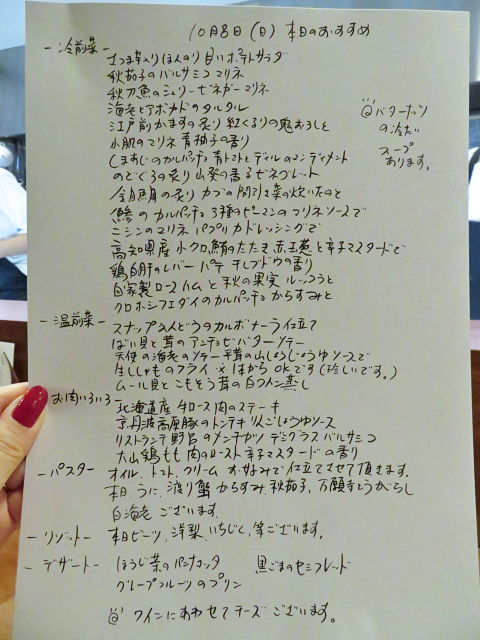 10月8日(日) 本日のおすすめ
－冷前菜－
さつま芋入りほんのり甘いポテトサラダ
秋茄子のバルサミコマリネ
秋刀魚のシェリービネガーマリネ
海老とアボカドのタルタル
江戸前かますの炙り 紅くるりの鬼おろしと
小肌のマリネ 青柚子の香り
しまあじのカルパッチョ 青トマトとディルのコンディメント
のどぐろの炙り 山葵の香るビネグレット
金目鯛の炙り カブの間引き菜の炊いたのと
鯵のカルパッチョ 3種のピーマンのマリネソースで
ニシンのマリネ パプリカドレッシングで
高知県産 小クロ鮪のたたき 赤玉葱と辛子マスタードで
鶏白肝のレバーパテ 干しブドウの香り
自家製ロースハムと秋の果実 ルッコラと
クロホシフエダイのカルパッチョ からすみと
◎バターナッツ
の冷たい
スープ
あります。
－温前菜－
スナップえんどうのカルボナーラ仕立て
ばい貝と茸のアンチョビバターソテー
天使の海老のソテー 茸の山しょうじょうゆソースで
生ししゃものフライ ※1本から OKです(珍しいです。)
ムール貝とこもそう茸の白ワイン蒸し
お肉いろいろ－
北海道産 牛ロース肉のステーキ
京丹波高原豚のトンテキ りんごしょうゆソース
リストランテ野呂のメンチカツ デミグラスバルサミコ
大山鶏もも肉のロースト 辛子マスタードの香り
－パスタ－
オイル、トマト、クリーム お好みで仕立てさせて頂きます。
本日 うに、渡り蟹 からすみ、秋茄子、万願寺とうがらし
白海老 ございます。
－リゾット－
本日ビーツ、洋梨、いちじく、等ございます。
－デザート－
ほうじ茶のパンナコッタ 黒ごまのセミフレッド
グレープフルーツのプリン
◎ワインにあわせてチーズございます。